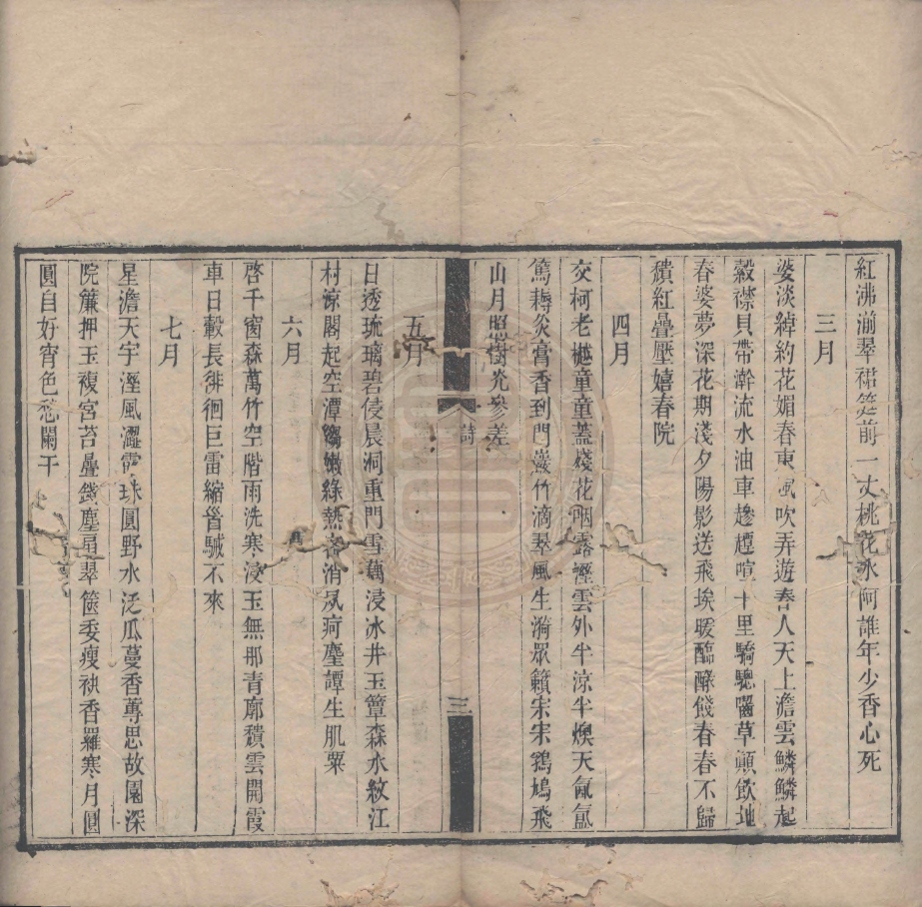 紅沸湔翠裙筵前一丈桃花水阿誰年少香心死
三月
婆淡綽約花媚春東風吹弄遊春人天上澹雲鱗鱗起
縠襟貝帶澣流水油車趁趯喧十里驕驄囓草顛飲地
春婆夢深花期淺夕陽影送飛埃暖酡醵餞春春不歸
穨紅疊壓嬉春院
四月
交柯老樾童童蓋殘花咽露壓雲外半涼半燠天氤氳
篤耨灸膏香到門巖竹滴翠風生漪眾籟宋宋鶉鳩飛
山月照樹光參差
詩
三
五月
日透琉璃碧侵晨洞重門雪藕浸冰井玉簟森水紋江
村涼閣起空潭 嫩綠熱客消夙疴麈譚生肌粟
六月
啓千窗森萬竹空階雨洗寒浸玉無那青廓穨雲開霞
車日轂長徘徊巨雷縮簪駴不來
七月
星澹天宇溼風澀露珠圓野水泛瓜蔓香蓴思故園深
院簾押玉複宮苔疊錢塵扇翠篋委瘦袂香羅寒月圓
圓自好宵色愁闌干